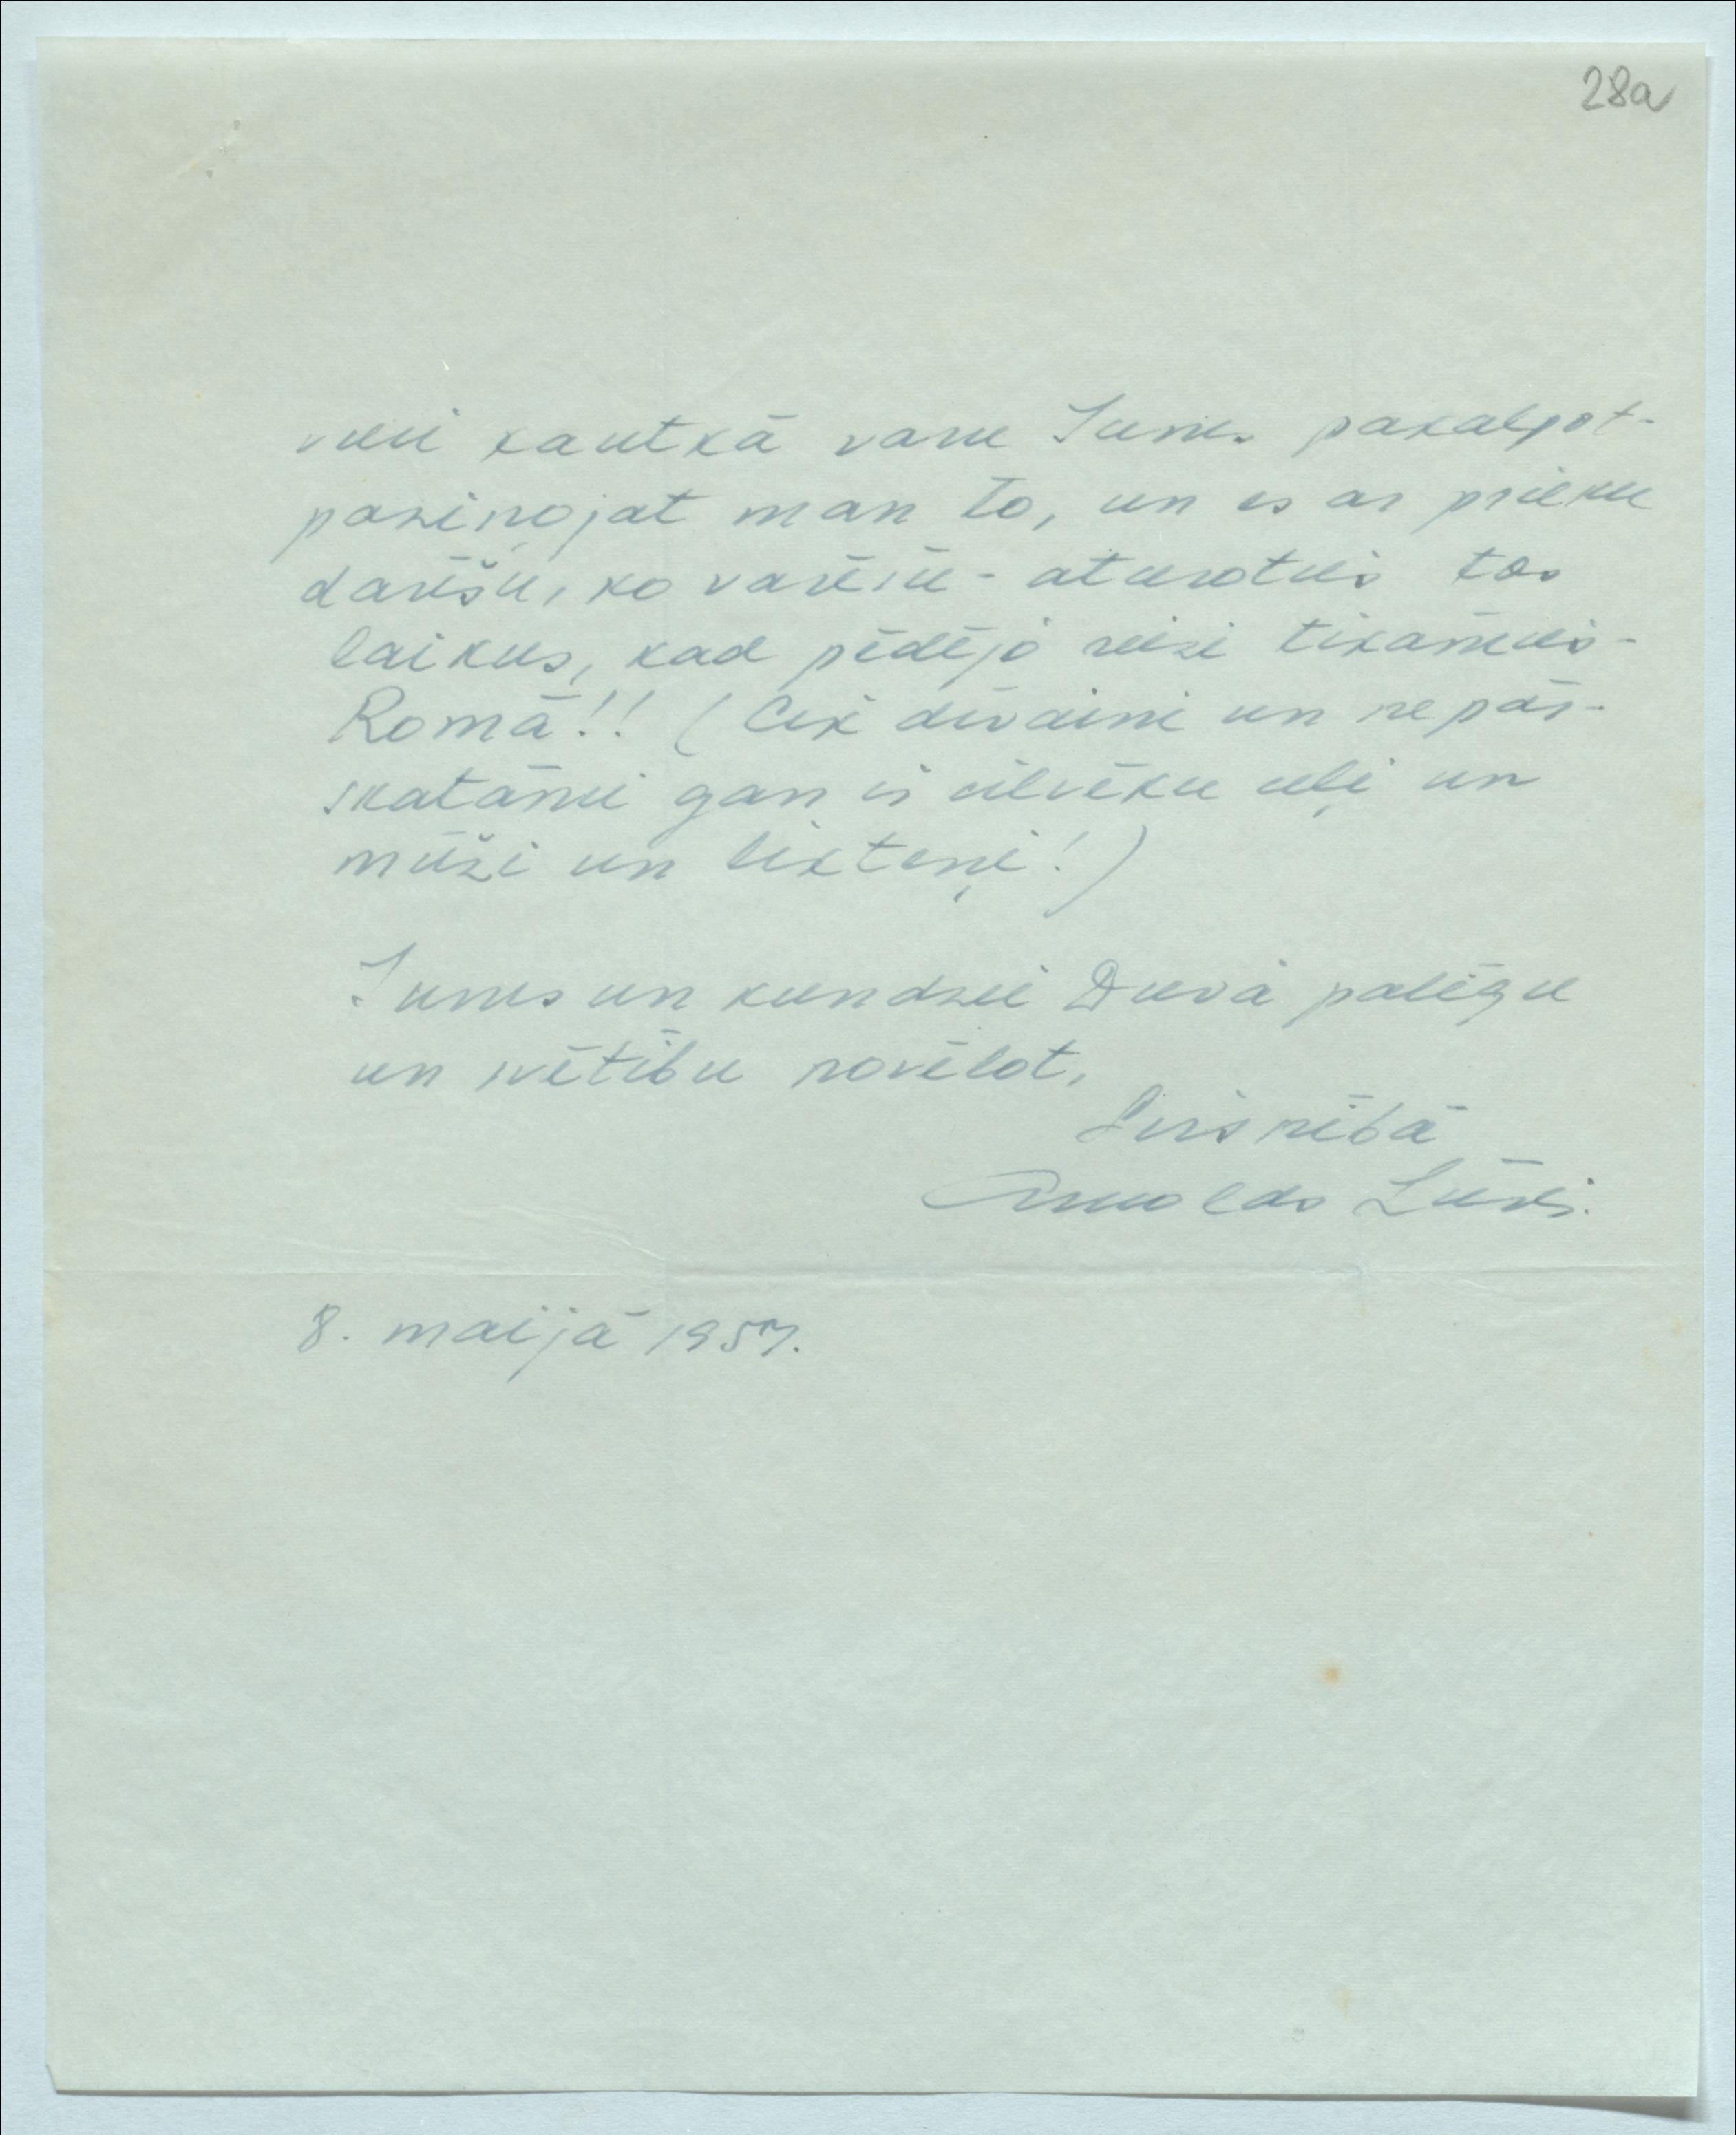 28a
vēl kautkā varu Jums pakalpot-
paziņojat man to, un es ar prieku
darīšu, ko varēšu - atceroties tos
laikus, kad pēdējo reizi tikāmies -
Romā!! (Cik dīvaini un nepār-
skatāmi gan ir cilvēku ceļi un
mūži un likteņi!)
Jums un kundzei Dieva palīgu
un svētību novēlot,
Sirsnībā
Arnolds Lūsis.
8. maijā 1957.